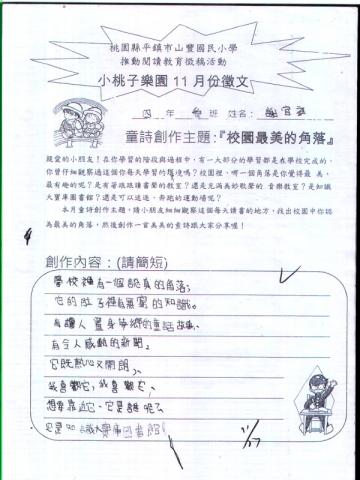 桃園縣平鎮市山豐國民小學
推動閱讀教育徵稿活動
小桃子樂園11月份徵文
四 年 班 姓名: 謝
童詩創作主題:『校園最美的角落』
親愛的小朋友!在你學習的階段與過程中,有一大部分的學習都是在學校完成的,
你曾仔細觀察過這個你每天學習的環境嗎?校園裡,哪一個角落是你覺得最 美、
最有趣的呢?是有著跟跟讀書聲的教室?還是充滿美妙歌聲的 音樂教室?是知識
大寶庫圖書館?還是可以追逐、奔跑的運動場呢?
本月童詩創作主題,請小朋友細細觀察這個每天讀書的地方,找出校園中你認
為最美的角落,然後創作一首美美的童詩跟大家分享喔!
創作內容:(請簡短)
學校裡有一個認真的角落;
它的肚子裡有無窮的知識。
有讓人置身夢鄉的童話故事、
有令人感動的新聞。
它既熱心又開朗,
我喜歡它,我喜歡它,
想要靠近它、它是誰呢?
它是知識大寶庫圖書館!
11/27